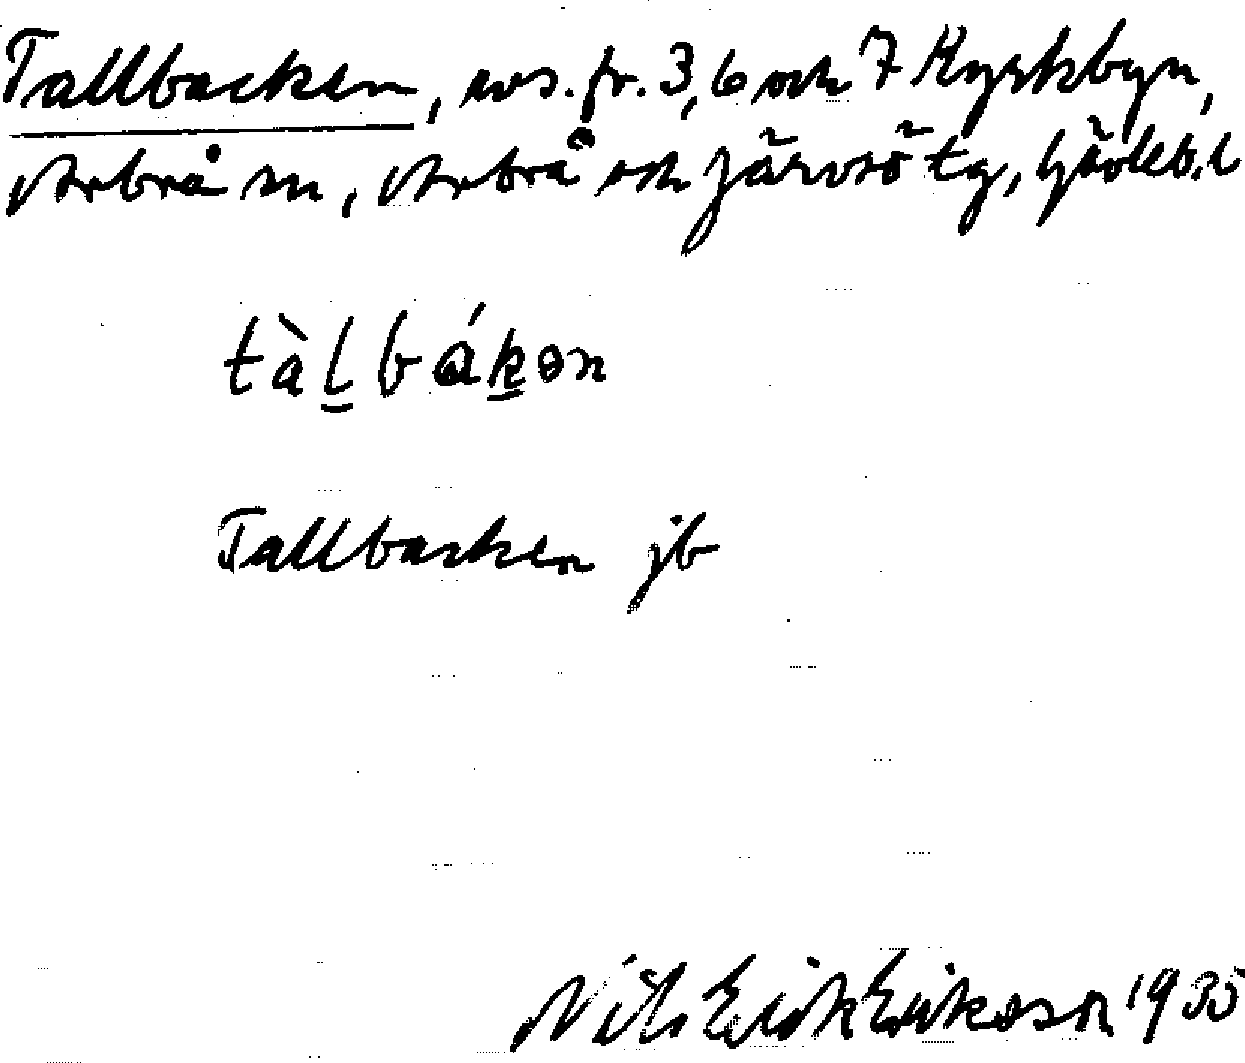 Tallbacken, avs. fr. 3, 6 och 7 Kyrkbyn,
Arbrå sn, Arbrå och Järvsö tg, Gävleb. l
tàl̲bák̲ən
Tallbacken jb
Nils Erik Eriksson 1935